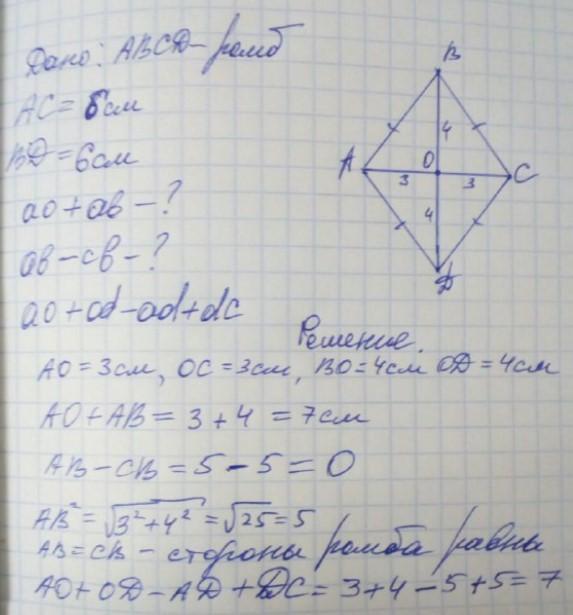 Дано: ABCD - ромб
AC = 6см
BD = 6см
ao + ab - ?
ab - cb - ?
ao + od - ad + dc
B
4
A
O
C
3
3
4
D
Решение.
AO = 3см, OC = 3см, BO = 4см OD = 4см
AO + AB = 3 + 4 = 7см
AB - CB = 5 - 5 = 0
AB² = √3² + 4² = √25 = 5
AB = CB - стороны ромба равны
AO + OD - AD + DC = 3 + 4 - 5 + 5 = 7